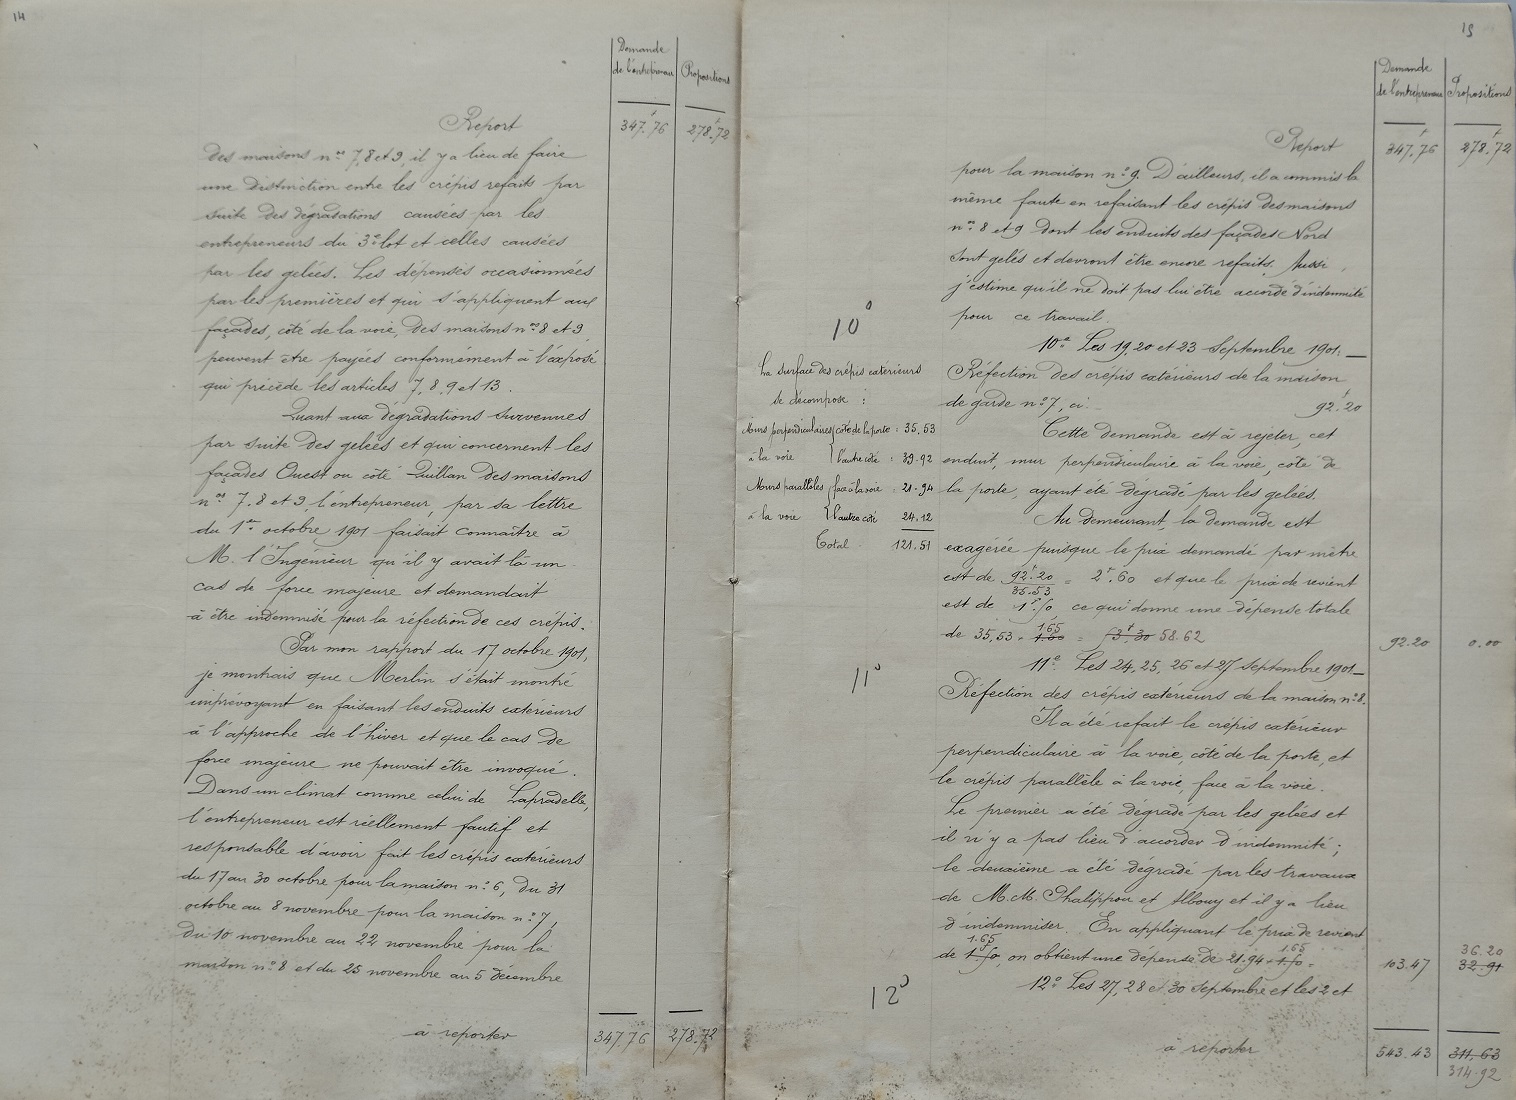 14
Demande
de l'entrepreneur
Propositions
Report
347f.76
278f.72
des maisons nos 7, 8 et 9, il y a lieu de faire
une distinction entre les crépis refaits par
suite des dégradations causées par les
entrepreneurs du 3e lot et celles causées
par les gelées. Les dépenses occasionnées
par les premières et qui s'appliquent aux
façades, côté de la voie, des maisons nos 8 et 9
peuvent être payées conformément à l'exposé
qui précède les articles 7, 8, 9 et 13.
Quant aux dégradations survenues
par suite des gelées et qui concernent les
façades Ouest ou côté Quillan des maisons
nos 7. 8 et 9, l'entrepreneur, par sa lettre
du 1er octobre 1901 faisait connaître à
M. l'Ingénieur qu'il y avait là un
cas de force majeure et demandait
à être indemnisé pour la réfection de ces crépis.
Par mon rapport du 17 octobre 1901,
je montrais que Merlin s'était montré
imprévoyant en faisant les enduits extérieurs
à l'approche de l'hiver et que le cas de
force majeure ne pouvait être invoqué.
Dans un climat comme celui de Lapradelle,
l'entrepreneur est réellement fautif et
responsable d'avoir fait les crépis extérieurs
du 17 au 30 octobre pour la maison no 6, du 31
octobre au 8 novembre pour la maison no 7,
du 10 novembre au 22 novembre pour la
maison no 8 et du 25 novembre au 5 décembre
à reporter
347.76
278.72
15
Demande
de l'entrepreneur
Propositions
Report
347f.76
278f.72
pour la maison no 9. D'ailleurs, il a commis la
même faute en refaisant les crépis des maisons
nos 8 et 9 dont les enduits des façades Nord
sont gelés et devront être encore refaits. Aussi,
j'estime qu'il ne doit pas lui être accordé d'indemnité
pour ce travail.
10o
10o Les 19, 20 et 23 Septembre 1901.—
Réfection des crépis extérieurs de la maison
de garde no 7, ci 92f.20
La surface des crépis extérieurs
se décompose :
Murs perpendiculaires côté de la porte = 35.53
à la voie l'autre côté = 39.92
Murs parallèles face à la voie = 21.94
à la voie l'autre côté 24.12
Total 121.51
Cette demande est à rejeter, cet
enduit, mur perpendiculaire à la voie, côté de
la porte, ayant été dégradé par les gelées.
Au demeurant, la demande est
exagérée puisque le prix demandé par mètre
est de 92f.20 / 35.53 = 2f.60 et que le prix de revient
est de 1f.50 ce qui donne une dépense totale
1.65
de 35,53 × 1.50 = 53f.30 58.62
92.20
0.00
11o
11o Les 24, 25, 26 et 27 Septembre 1901—
Réfection des crépis extérieurs de la maison no 8.
Il a été refait le crépis extérieur
perpendiculaire à la voie, côté de la porte, et
le crépis parallèle à la voie, face à la voie.
Le premier a été dégradé par les gelées et
il n'y a pas lieu d'accorder d'indemnité ;
le deuxième a été dégradé par les travaux
de M.M. Phalippou et Albouy et il y a lieu
d'indemniser. En appliquant le prix de revient
1.65 1.65
de 1f.50, on obtient une dépense de 21.94 × 1f.50 =
103.47
36.20
32.91
12o
12o Les 27, 28 et 30 Septembre et les 2 et
à reporter
543.43
311.63
314.92